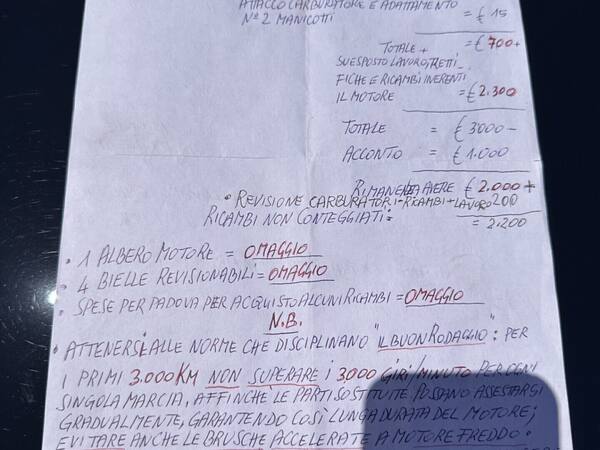 ATTACCO CARBURATORE E ADATTAMENTO
N° 2 MANICOTTI = € 15
TOTALE + = € 700+
SUESPOSTO LAVORO, RETTI-
FICHE E RICAMBI INERENTI
IL MOTORE = € 2.300
TOTALE = € 3000-
ACCONTO = € 1.000
RIMANENZA AVERE € 2.000+
• REVISIONE CARBURATORI-RICAMBI+LAVORO 200
= 2.200
RICAMBI NON CONTEGGIATI:
• 1 ALBERO MOTORE = OMAGGIO
• 4 BIELLE REVISIONABILI = OMAGGIO
• SPESE PER PADOVA PER ACQUISTO ALCUNI RICAMBI = OMAGGIO
N.B.
• ATTENERSI ALLE NORME CHE DISCIPLINANO "IL BUON RODAGGIO": PER
I PRIMI 3.000 KM NON SUPERARE I 3,000 GIRI/MINUTO PER OGNI
SINGOLA MARCIA, AFFINCHE LE PARTI SOSTITUITE POSSANO ASSESTARSI
GRADUALMENTE, GARANTENDO COSÌ LUNGA DURATA DEL MOTORE;
EVITARE ANCHE LE BRUSCHE "ACCELERATE A MOTORE FREDDO".